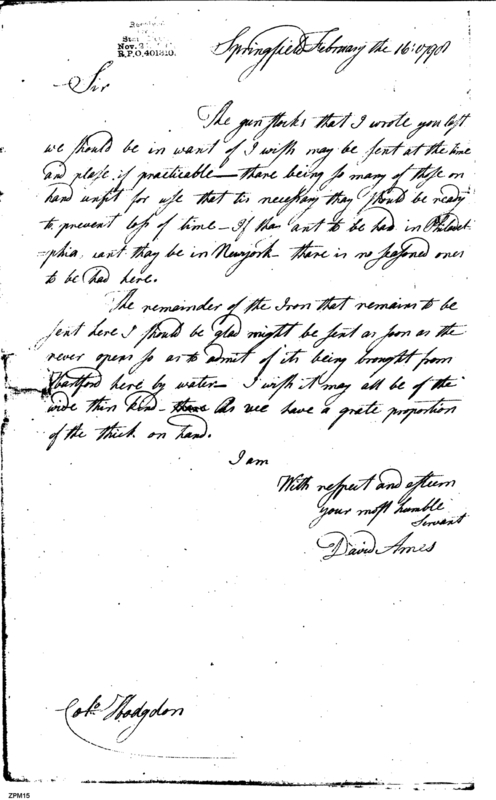 Nov. 2
R.P.O. 401320.
Springfield February the 16th 1798
Sir
The gun stocks that I wrote you last
we should be in want of I wish may be sent at the time
and place if practicable – thare being so many of those on
hand unfit for use that tis necessary thay should be ready
to prevent loss of time – If thay ant to be had in Philadel-
phia, cant thay be in Newyork – there is no seasoned ones
to be had here.
The remainder of the Iron that remains to be
sent here I should be glad might be sent as soon as the
rever opens so as to admit of its being brought from
Hartford here by water – I wish it may all be of the
wide thin kind – As we have a grate proportion
of the thick on hand.
I am
With respect and esteem
your most humble
Servant
David Ames
Colo. Hodgdon
ZPM15